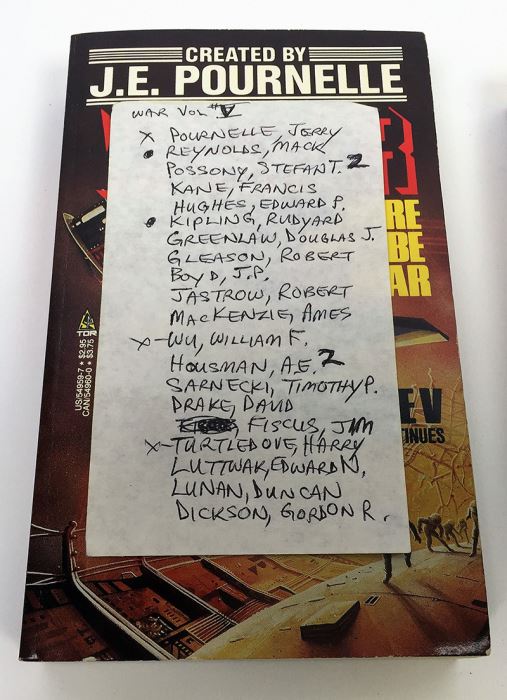 CREATED BY
J.E. POURNELLE
WAR VOL #V
X POURNELLE, JERRY
• REYNOLDS, MACK
POSSONY, STEFAN T. 2
KANE, FRANCIS
HUGHES, EDWARD P.
• KIPLING, RUDYARD
GREENLAW, DOUGLAS J.
GLEASON, ROBERT
BOYD, J.P.
JASTROW, ROBERT
MACKENZIE, AMES
X-WU, WILLIAM F.
HOUSMAN, A.E. 2
SARNECKI, TIMOTHY P.
DRAKE, DAVID
, FISCUS, JIM
X-TURTLEDOVE, HARRY
LUTTWAK, EDWARD N,
LUNAN, DUNCAN
DICKSON, GORDON R.
R
RE
BE
AR
EV
TINUES
TOR
US/54959-7 ★ $2.95
CAN/54960-0 ★ $3.75